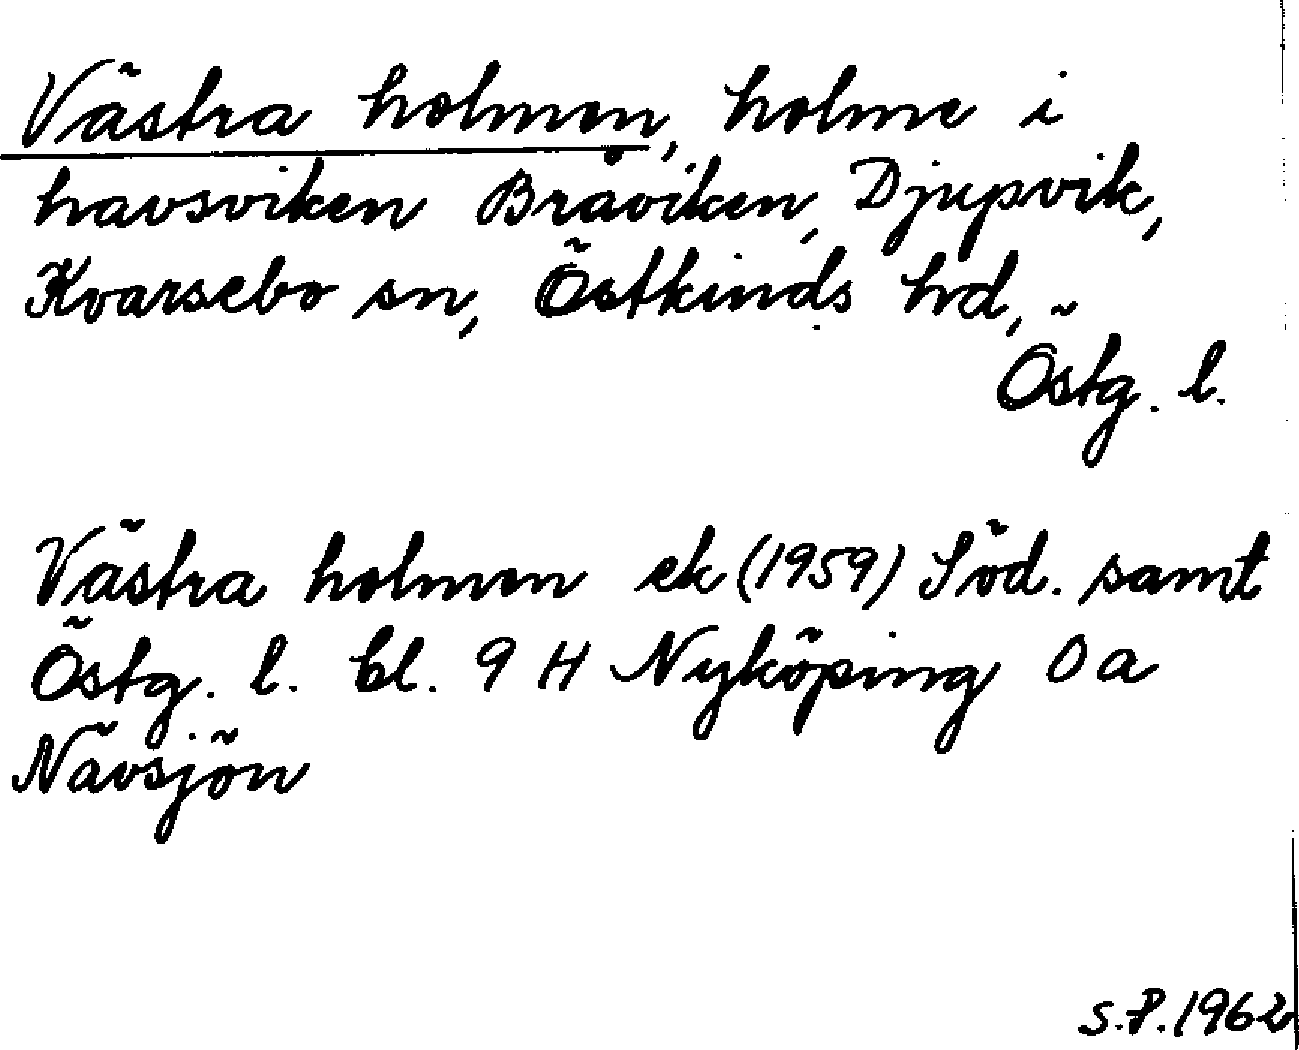 Västra holmen, holme i
havsviken Bråviken, Djupvik,
Kvarsebo sn, Östkinds hd,
Östg. l.
Västra holmen ek (1959) Söd. samt
Östg. l. bl. 9 H Nyköping 0 a
Nävsjön
S.P. 1962